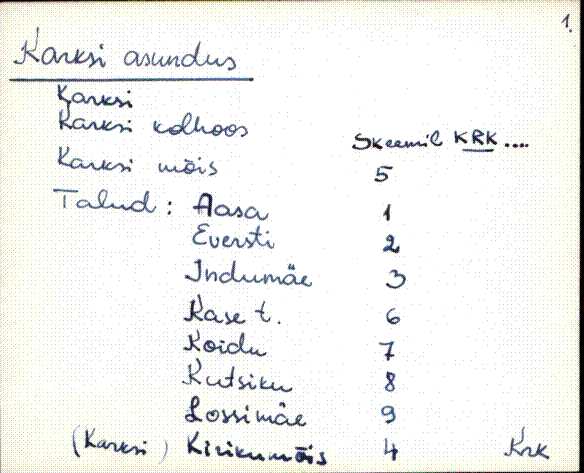 1.
Karksi asundus
Karksi
Karksi kolhoos
Skeemil KRK ....
Karksi mõis 5
Talud : Aasa 1
Eversti 2
Indumäe 3
Kase t. 6
Koidu 7
Kutsiku 8
Lossimäe 9
(Karksi) Kirikumõis 4 Krk